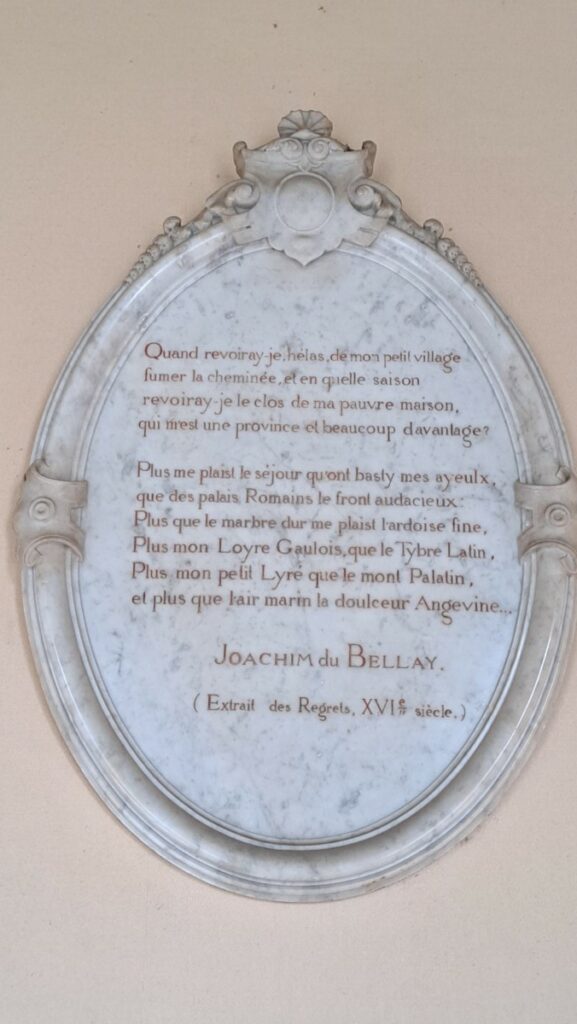 Quand revoiray-je, helas, de mon petit village
fumer la cheminée, et en quelle saison
revoiray-je le clos de ma pauvre maison,
qui m'est une province et beaucoup d'avantage?
Plus me plaist le séjour qu'ont basty mes ayeulx,
que des palais Romains le front audacieux:
Plus que le marbre dur me plaist l'ardoise fine,
Plus mon Loyre Gaulois, que le Tybre Latin,
Plus mon petit Lyre que le mont Palatin,
et plus que l'air marin la doulceur Angevine...
JOACHIM du BELLAY.
(Extrait des Regrets, XVIe siècle.)